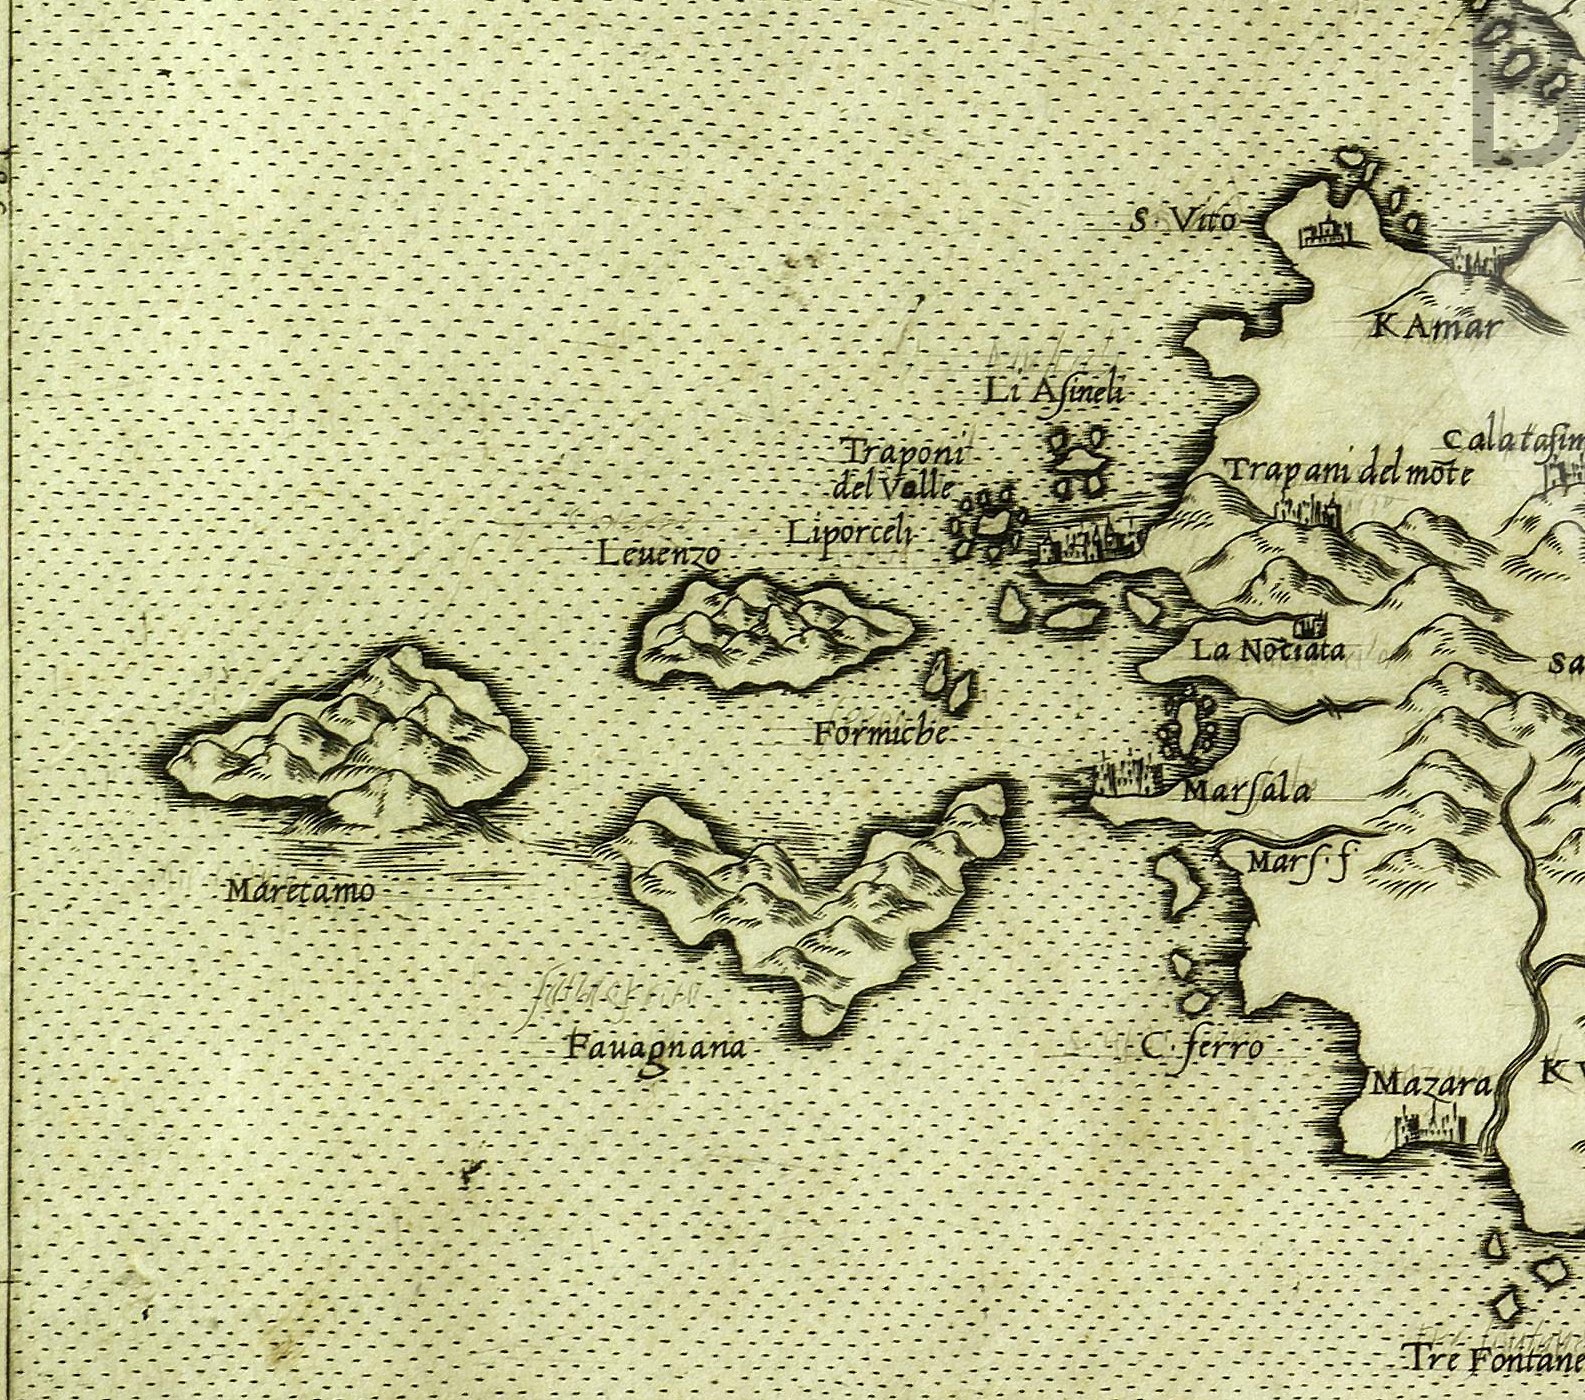 S. Vito
KAmar
Li Aſineli
Traponi
del Valle
Calataſim
Trapani del mōte
Liporceli
Leuenzo
La Nociata
Sa
Formiche
Marſala
Marſ. f
Maretamo
Fauagnana
C. ferro
Mazara
K V
Tre Fontane
B